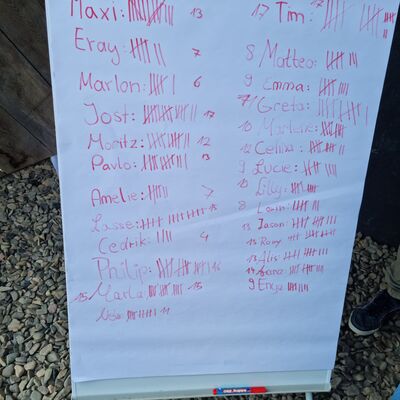 Maxi: 13
Eray: 7
Marlon: 6
Jost: 17
Moritz: 12
Pavlo: 13
Amelie: 7
Lasse: 15
Cedrik: 4
Philip: 16
15 Marla: 15
11
17 Tim:
8 Matteo:
9 Emma:
Greta:
10 Marlene:
12 Celina:
9 Lucie:
10 Lilly:
8
13 Jason:
15 Romy
13 Alis
14 Lara
9 Enya